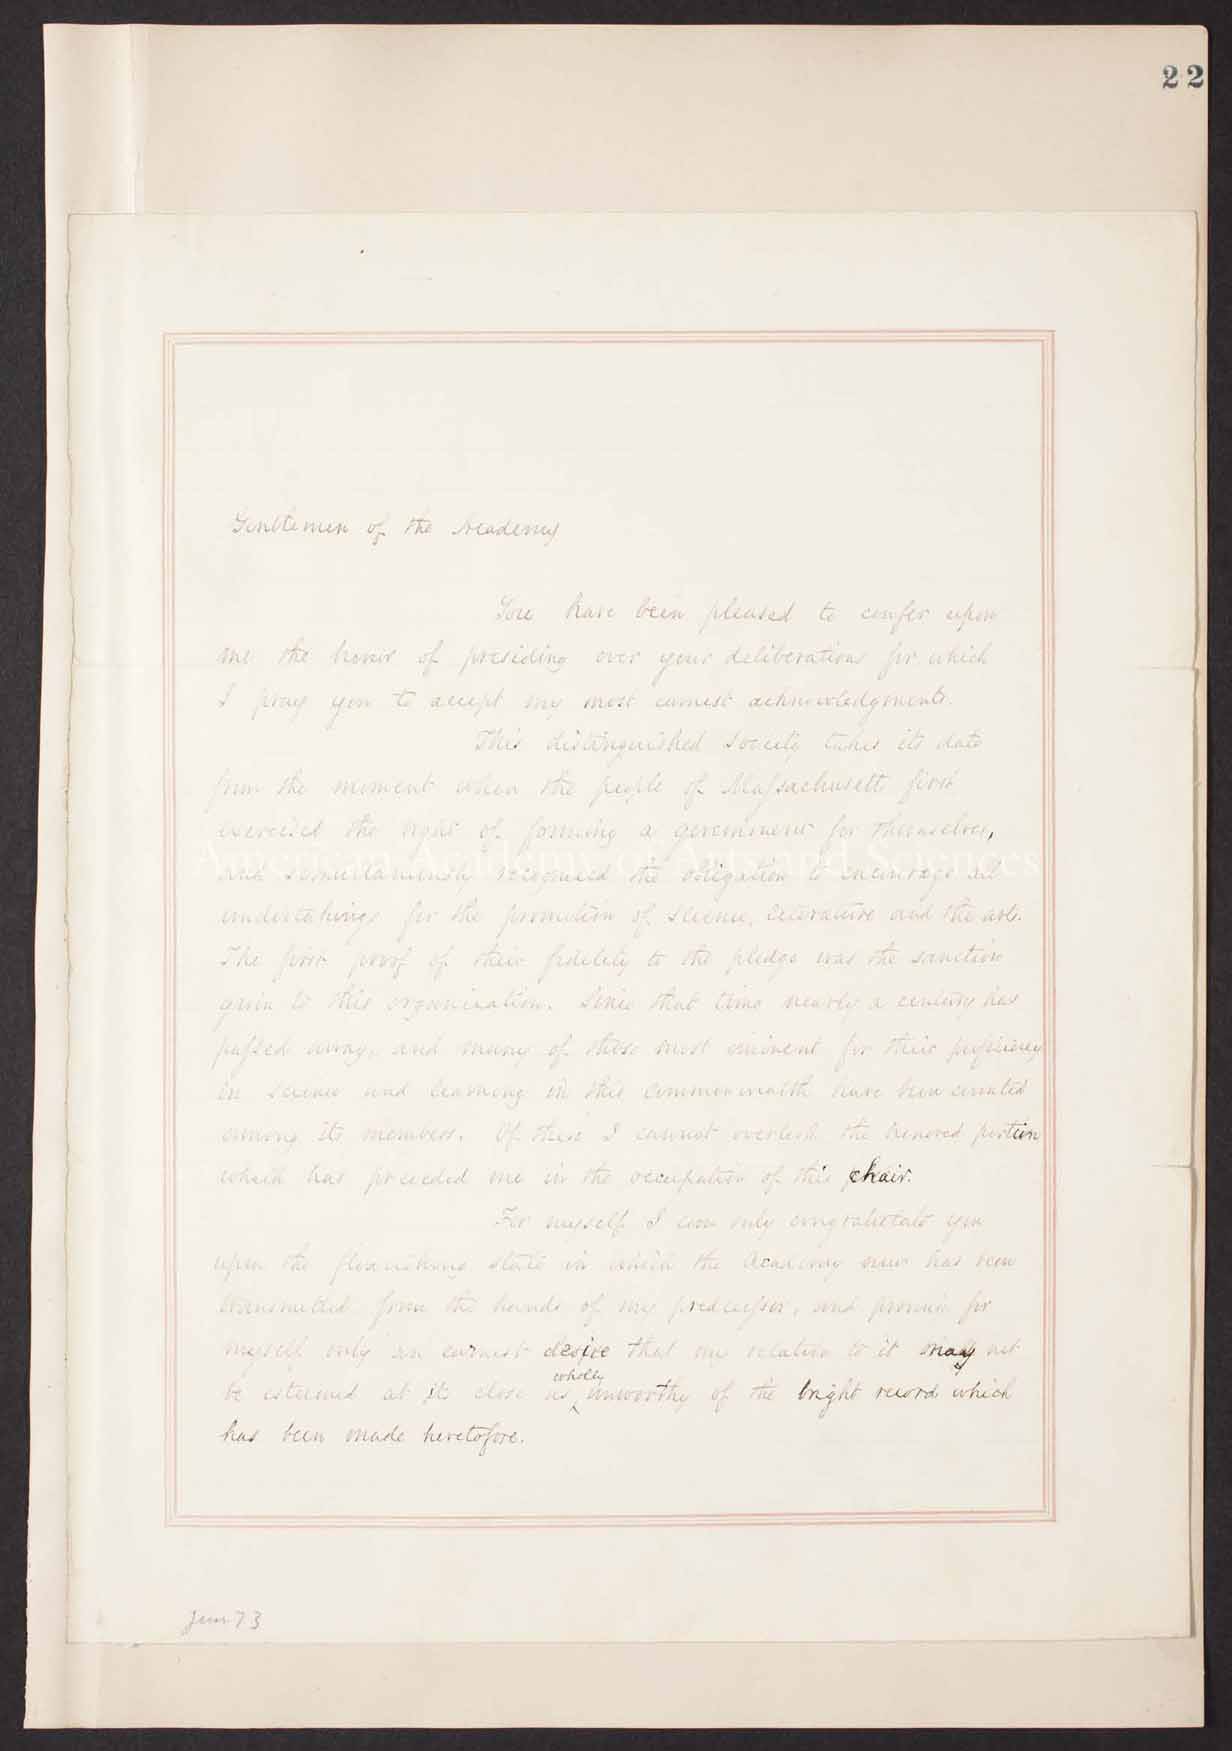 22
Gentlemen of the Academy
You have been pleased to confer upon
me the honor of presiding over your deliberations for which
I pray you to accept my most earnest acknowledgments.
This distinguished Society takes its date
from the moment when the people of Massachusetts first
exercised the right of forming a government for themselves,
American Academy of Arts and Sciences
and simultaneously recognised the obligation to encourage all
undertakings for the promotion of science, literature and the arts.
The first proof of their fidelity to the pledge was the sanction
given to this organization. Since that time nearly a century has
passed away, and many of those most eminent for their proficiency
in science and learning in this Commonwealth have been counted
among its members. Of these I cannot overlook the honored portion
which has preceded me in the occupation of this chair.
For myself I can only congratulate you
upon the flourishing state in which the Academy now has been
transmitted from the hands of my predecessor, and promise for
myself only an earnest desire that my relation to it may not
be esteemed at its close as wholly unworthy of the bright record which
has been made heretofore.
June 73